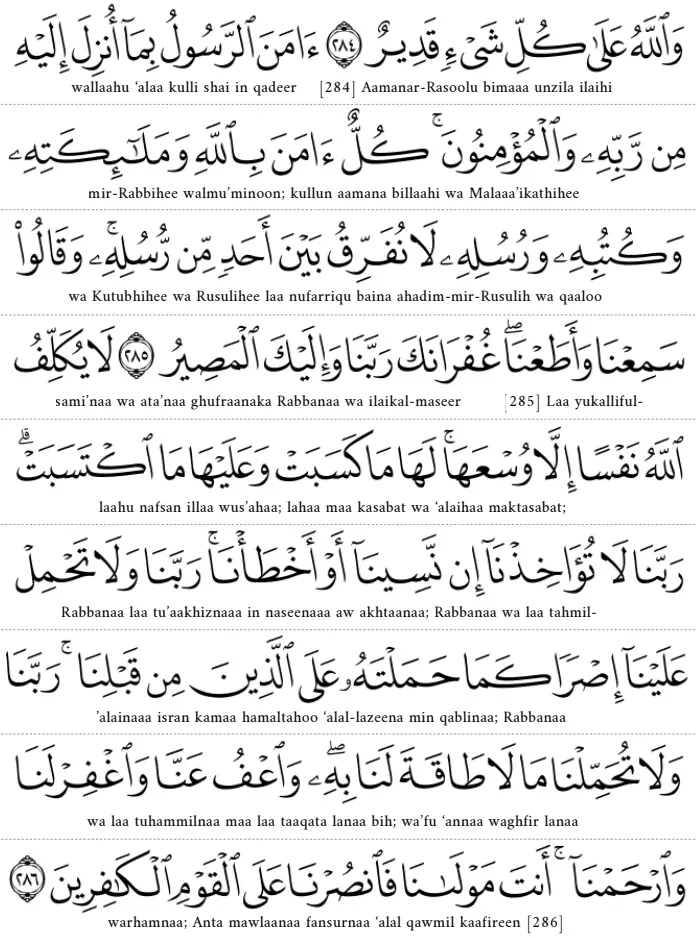 وَٱللَّهُ عَلَىٰ كُلِّ شَىْءٍ قَدِيرٌ ﴿٢٨٤﴾ ءَامَنَ ٱلرَّسُولُ بِمَآ أُنزِلَ إِلَيْهِ
wallaahu ‘alaa kulli shai in qadeer [284] Aamanar-Rasoolu bimaaa unzila ilaihi
مِن رَّبِّهِۦ وَٱلْمُؤْمِنُونَ ۚ كُلٌّ ءَامَنَ بِٱللَّهِ وَمَلَـٰٓئِكَتِهِۦ
mir-Rabbihee walmu’minoon; kullun aamana billaahi wa Malaaa’ikathihee
وَكُتُبِهِۦ وَرُسُلِهِۦ لَا نُفَرِّقُ بَيْنَ أَحَدٍ مِّن رُّسُلِهِۦ ۚ وَقَالُوا۟
wa Kutubhihee wa Rusulihee laa nufarriqu baina ahadim-mir-Rusulih wa qaaloo
سَمِعْنَا وَأَطَعْنَا ۖ غُفْرَانَكَ رَبَّنَا وَإِلَيْكَ ٱلْمَصِيرُ ﴿٢٨٥﴾ لَا يُكَلِّفُ
sami’naa wa ata’naa ghufraanaka Rabbanaa wa ilaikal-maseer [285] Laa yukalliful-
ٱللَّهُ نَفْسًا إِلَّا وُسْعَهَا ۚ لَهَا مَا كَسَبَتْ وَعَلَيْهَا مَا ٱكْتَسَبَتْ ۗ
laahu nafsan illaa wus’ahaa; lahaa maa kasabat wa ‘alaihaa maktasabat;
رَبَّنَا لَا تُؤَاخِذْنَآ إِن نَّسِينَآ أَوْ أَخْطَأْنَا ۚ رَبَّنَا وَلَا تَحْمِلْ
Rabbanaa laa tu’aakhiznaaa in naseenaaa aw akhtaanaa; Rabbanaa wa laa tahmil-
عَلَيْنَآ إِصْرًا كَمَا حَمَلْتَهُۥ عَلَى ٱلَّذِينَ مِن قَبْلِنَا ۚ رَبَّنَا
’alainaaa isran kamaa hamaltahoo ‘alal-lazeena min qablinaa; Rabbanaa
وَلَا تُحَمِّلْنَا مَا لَا طَاقَةَ لَنَا بِهِۦ ۖ وَٱعْفُ عَنَّا وَٱغْفِرْ لَنَا
wa laa tuhammilnaa maa laa taaqata lanaa bih; wa’fu ‘annaa waghfir lanaa
وَٱرْحَمْنَآ ۚ أَنتَ مَوْلَىٰنَا فَٱنصُرْنَا عَلَى ٱلْقَوْمِ ٱلْكَـٰفِرِينَ ﴿٢٨٦﴾
warhamnaa; Anta mawlaanaa fansurnaa ‘alal qawmil kaafireen [286]